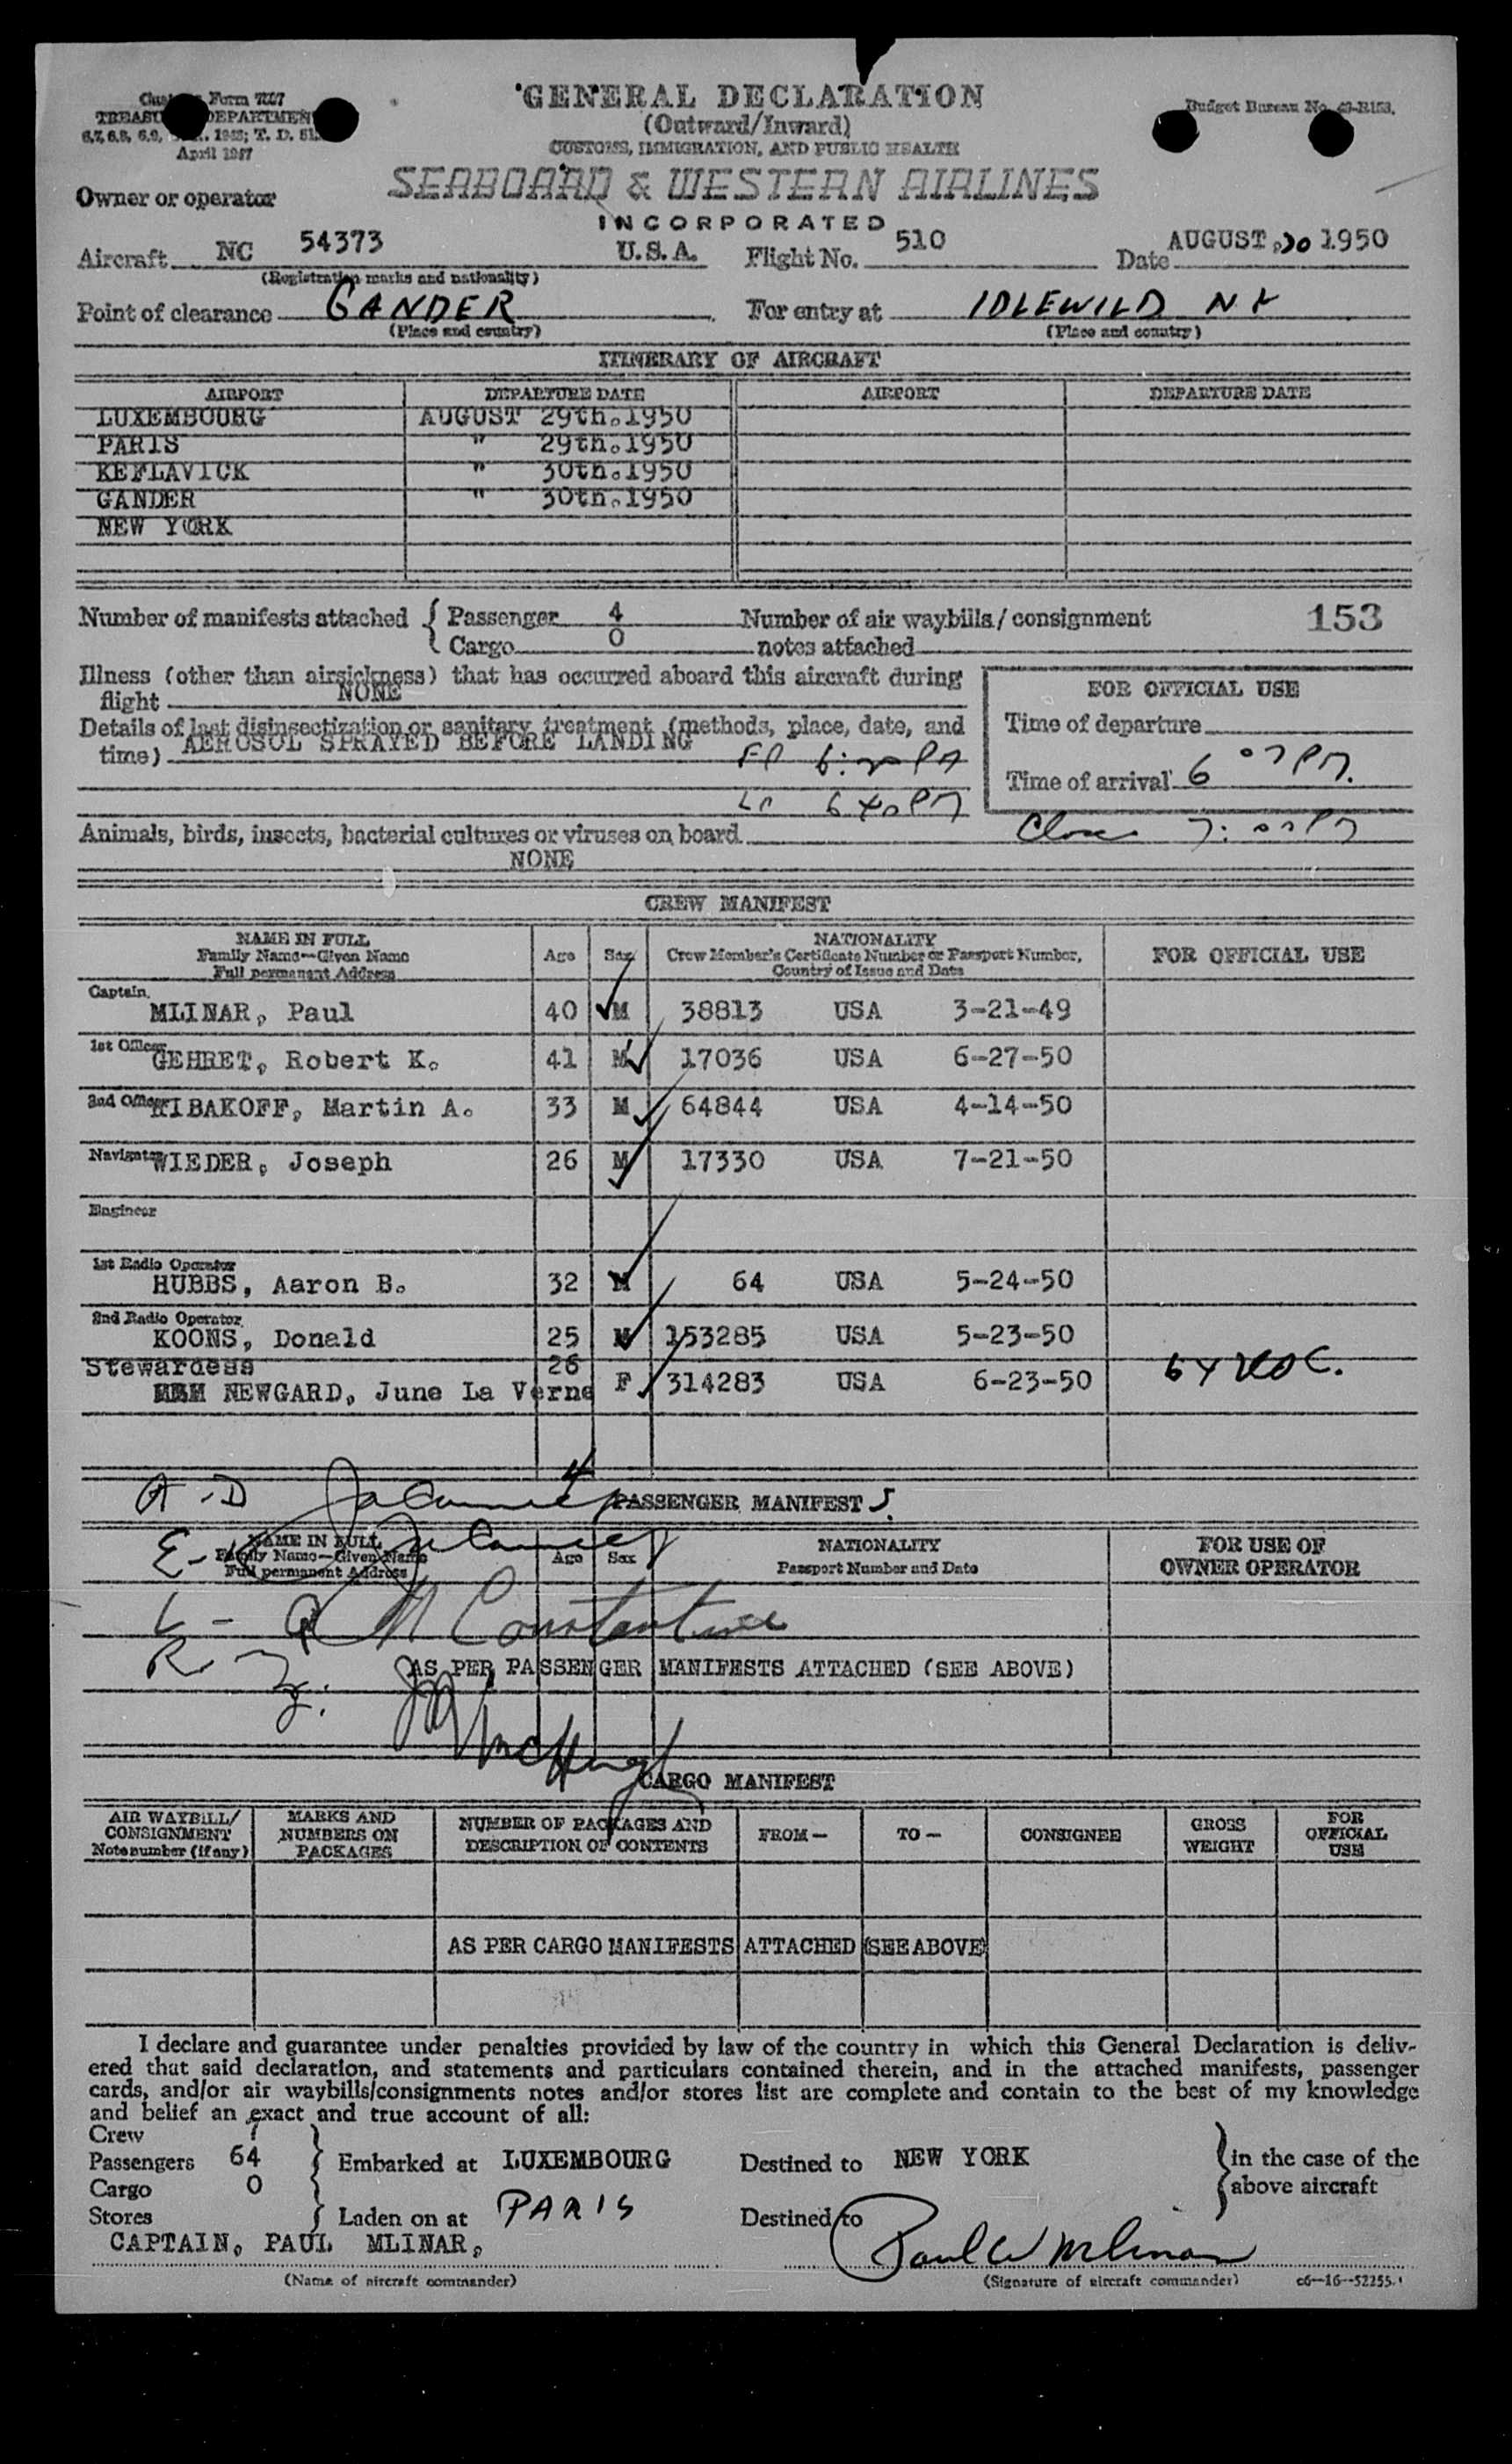 Customs Form 7507
GENERAL DECLARATION
Budget Bureau No.
TREASURY DEPARTMENT
(Outward/Inward)
April 1947
CUSTOMS, IMMIGRATION, AND PUBLIC HEALTH
Owner or operator SEABOARD & WESTERN AIRLINES
INCORPORATED
Aircraft NC 54373 U.S.A. Flight No. 510 Date AUGUST, 30 1950
(Registration marks and nationality)
Point of clearance GANDER For entry at IDLEWILD N Y
(Place and country) (Place and country)
ITINERARY OF AIRCRAFT
AIRPORT DEPARTURE DATE AIRPORT DEPARTURE DATE
LUXEMBOURG AUGUST 29th.1950
PARIS " 29th.1950
KEFLAVICK " 30th.1950
GANDER " 30th.1950
NEW YORK
Number of manifests attached { Passenger 4 Number of air waybills/consignment 153
Cargo 0 notes attached
Illness (other than airsickness) that has occurred aboard this aircraft during
flight NONE
FOR OFFICIAL USE
Details of last disinsectization or sanitary treatment (methods, place, date, and
time) AEROSOL SPRAYED BEFORE LANDING
Time of departure
Time of arrival 6 07 PM.
Animals, birds, insects, bacterial cultures or viruses on board
NONE
CREW MANIFEST
NAME IN FULL
Family Name—Given Name
Full permanent Address
Age Sex
NATIONALITY
Crew Member's Certificate Number or Passport Number,
Country of Issue and Date
FOR OFFICIAL USE
Captain.
MLINAR, Paul 40 M 38813 USA 3-21-49
1st Officer
GEHRET, Robert K. 41 M 17036 USA 6-27-50
2nd Officer
RIBAKOFF, Martin A. 33 M 64844 USA 4-14-50
Navigator
WIEDER, Joseph 26 M 17330 USA 7-21-50
Engineer
1st Radio Operator
HUBBS, Aaron B. 32 M 64 USA 5-24-50
2nd Radio Operator
KOONS, Donald 25 M 153285 USA 5-23-50
Stewardess 26
NEWGARD, June La Verne F 314283 USA 6-23-50
A-D
PASSENGER MANIFEST
NAME IN FULL
Family Name—Given Name
Full permanent Address
Age Sex
NATIONALITY
Passport Number and Date
FOR USE OF
OWNER OPERATOR
L - Q M Constantine
R. Z.
AS PER PASSENGER MANIFESTS ATTACHED (SEE ABOVE)
McHugh
CARGO MANIFEST
AIR WAYBILL/
CONSIGNMENT
Note number (if any)
MARKS AND
NUMBERS ON
PACKAGES
NUMBER OF PACKAGES AND
DESCRIPTION OF CONTENTS
FROM—
TO—
CONSIGNEE
GROSS
WEIGHT
FOR
OFFICIAL
USE
AS PER CARGO MANIFESTS ATTACHED (SEE ABOVE)
I declare and guarantee under penalties provided by law of the country in which this General Declaration is deliv-
ered that said declaration, and statements and particulars contained therein, and in the attached manifests, passenger
cards, and/or air waybills/consignments notes and/or stores list are complete and contain to the best of my knowledge
and belief an exact and true account of all:
Crew 7
Passengers 64 Embarked at LUXEMBOURG Destined to NEW YORK in the case of the
Cargo 0 above aircraft
Stores Laden on at PARIS Destined to
CAPTAIN, PAUL MLINAR, Paul W Mlinar
(Name of aircraft commander) (Signature of aircraft commander) c6—16—52255-1